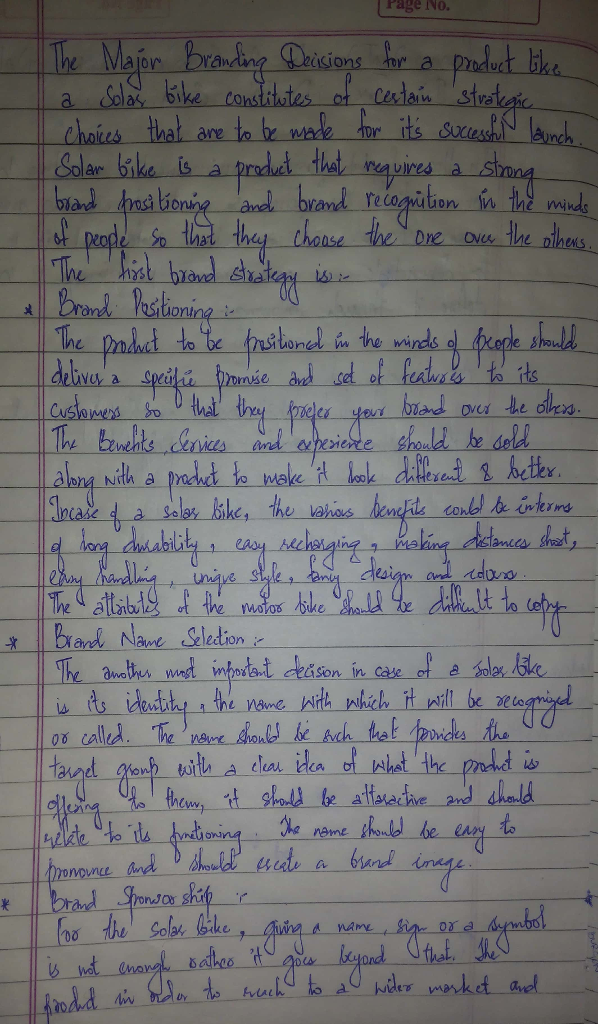 Page No.
The Major Branding Decisions for a product like
a Solar bike constitutes of certain strategic
choices that are to be made for it's successful launch.
Solar bike is a product that requires a strong
brand positioning and brand recognition in the minds
of people so that they choose the one over the others.
The first brand strategy is :-
* Brand Positioning :-
The product to be positioned in the minds of people should
deliver a specific promise and set of features to its
customers so that they prefer your brand over the others.
The Benefits, Services and experience should be sold
along with a product to make it look different & better.
Incase of a solar bike, the various benefits could be interms
of long durability, easy recharging, making distances short,
easy handling, unique style, fancy design and colours.
The attributes of the motor bike should be difficult to copy
* Brand Name Selection :-
The another most important decision in case of a solar bike
is its identity, the name with which it will be recognized
or called. The name should be such that provides the
target group with a clear idea of what the product is
offering to them, it should be attaractive and should
relate to its functioning. The name should be easy to
pronounce and should create a brand image.
* Brand Sponsorship :-
For the solar bike, giving a name, sign or a symbol
is not enough rather it goes beyond that. The
product in order to reach to a wider market and